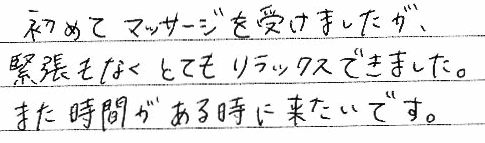 初めてマッサージを受けましたが、
緊張もなくとてもリラックスできました。
また時間がある時に来たいです。